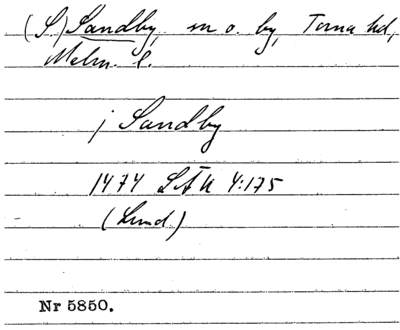 (S.) Sandby, sn o. by, Torna hd,
Malm. l.
j Sandby
1474 LÄU 4:175
(Lund)
Nr 5850.